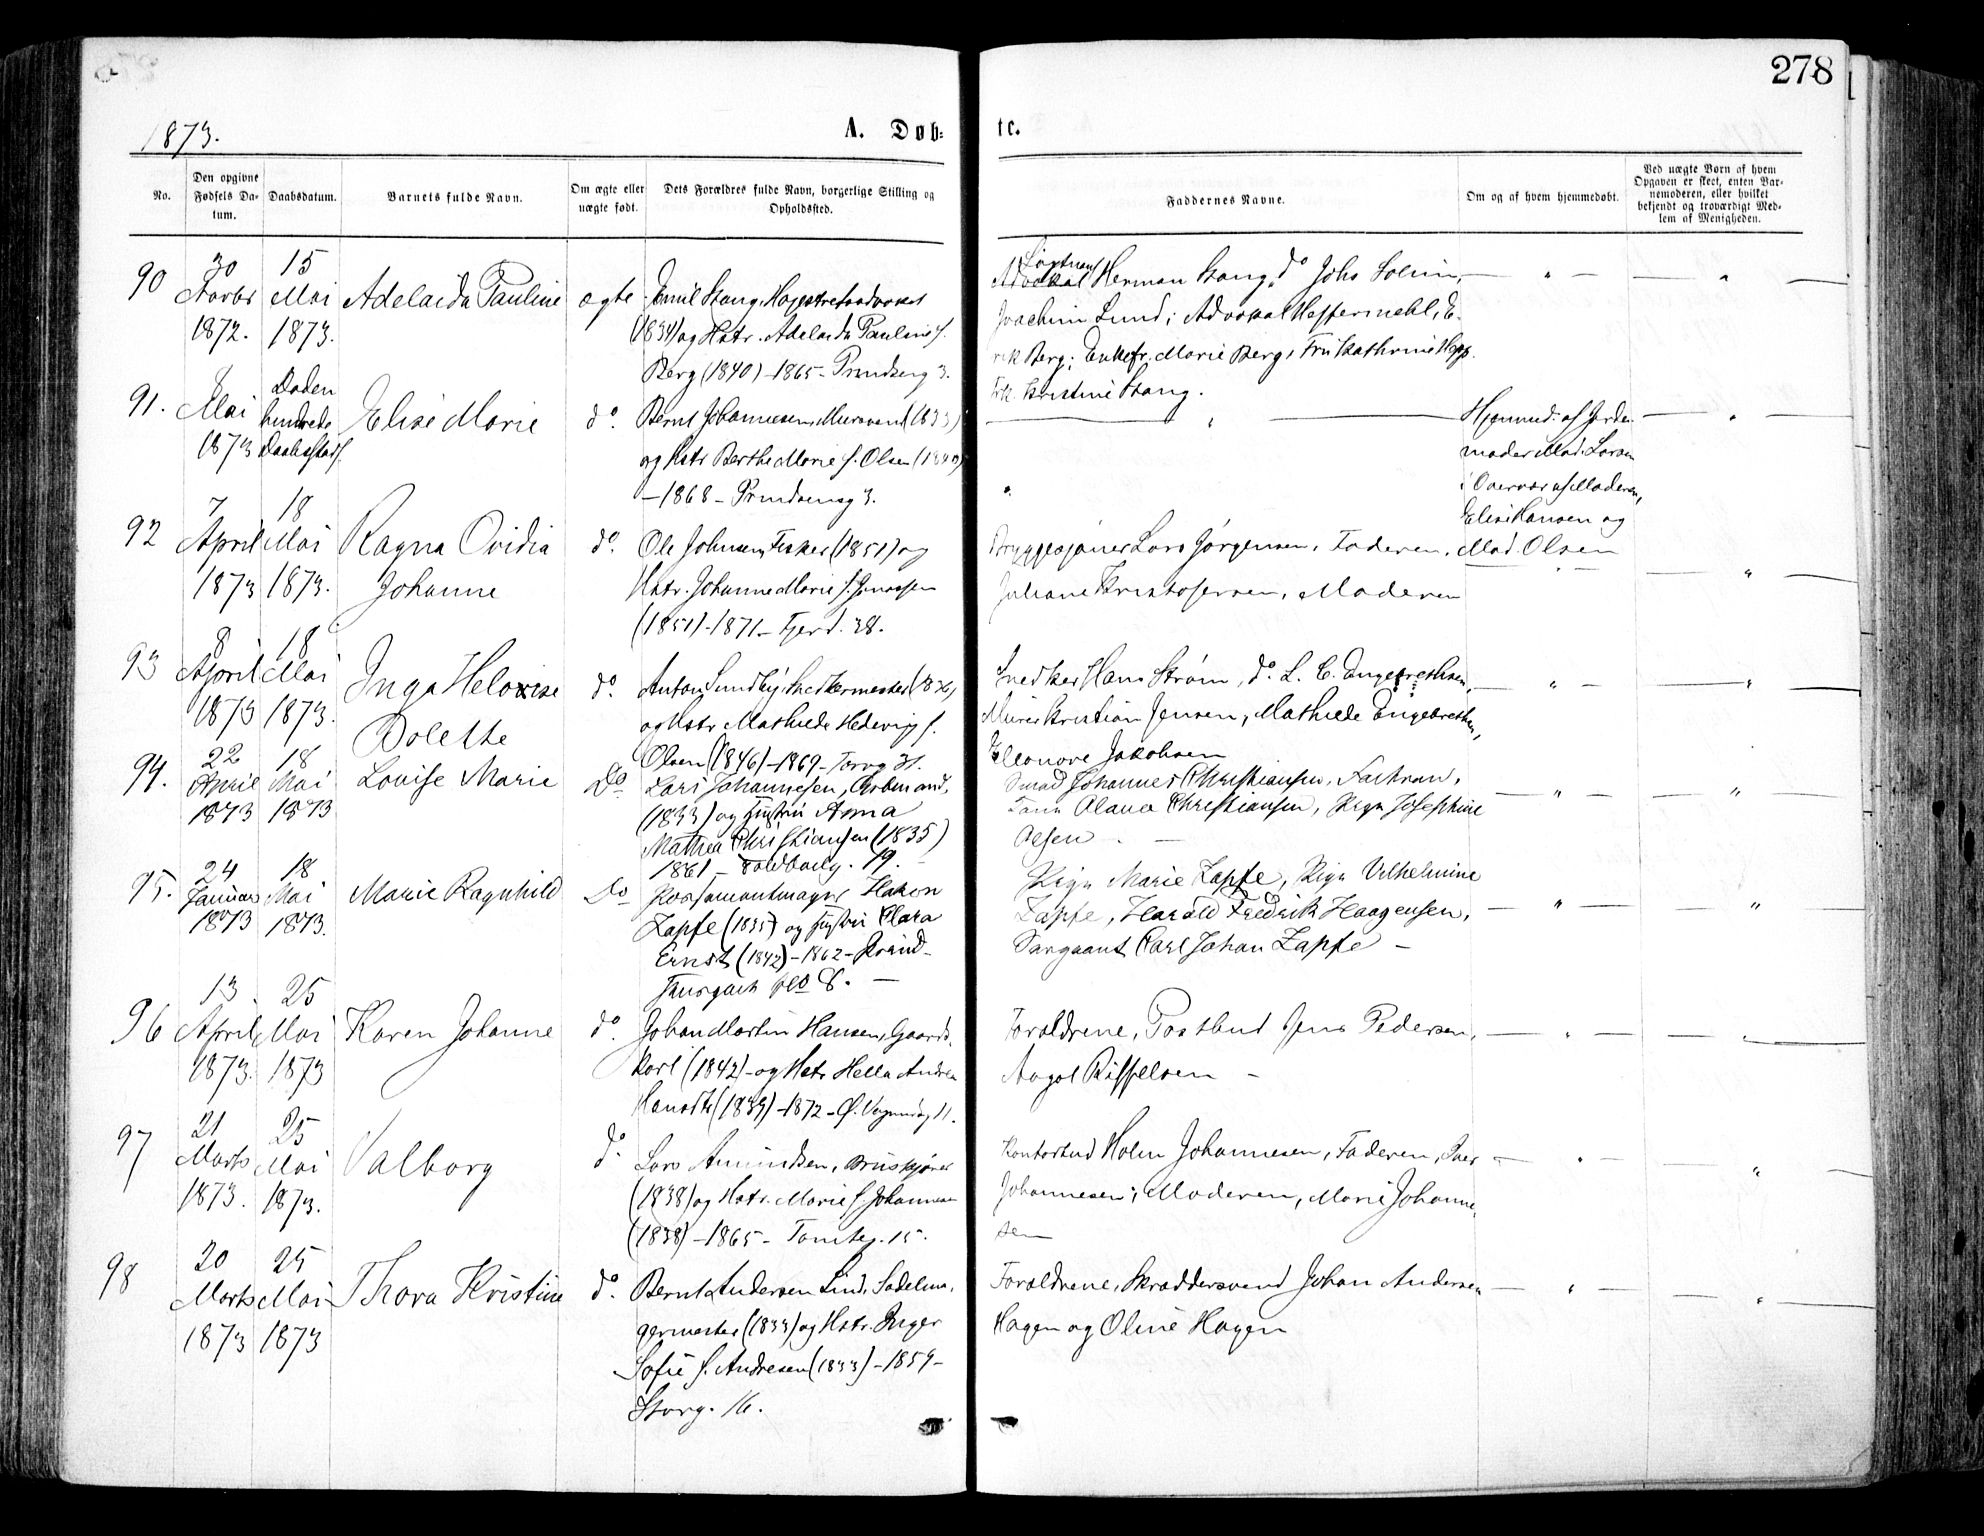 278
1873.
A. Døb-
te.
No.
Den opgivne Fødsels Da-tum.
Daabsdatum.
Barnets fulde Navn.
Om ægte eller uægte født.
Dets Forældres fulde Navn, borgerlige Stilling og Opholdssted.
Faddernes Navne.
Om og af hvem hjemmedøbt.
Ved uægte Børn af hvem
Opgaven er skeet, enten Bar-
nemoderen, eller hvilket
bekjendt og troværdigt Med-
lem af Menigheden.
90
30
1872.
15
Mai
1873.
Adelaida Pauline
ægte
Emil Stang, Høiesteretsadvokat
(1834) og Hstr. Adelaida Pauline f.
Berg (1840) - 1865 - Prindseng 3.
Advokat Herman Stang, do Johs
Joachim Lund; Advokat Heftermehl, E-
rik Berg; Enkefr. Marie Berg, Fru Kathrine
Frk Kristine Stang.
91.
8
Mai
1873
Døden
hindrede
Elise Marie
do.
Bernt Johannesen, Mursvend (1833)
og Hstr Berthe Marie f. Olsen
- 1868 - Prindsensg 3.
Hjemmed. af Jorde-
moder Mad. Larsen
i Overvær af Moderen,
Elise Hansen og
Mad. Olsen
92
7
April
1873
18
Mai
1873.
Ragna Ovidia
Johanne
do.
Ole Johnsen, Fisker (1851) og
Hstr. Johanne Marie f. Jonassen
(1851) - 1871 - Fjerd. 38.
Bryggesjouer Lars Jørgensen, Faderen,
Juliane Kristofersen, Moderen
93
8
April
1873
18
Mai
1873.
Inga Heloise
Dolette
do.
Anton Sundby, Snedkermester (1836)
og Hstr Mathilde Hedevig f.
Olsen (1846) - 1869 - Torvg 31.
Snedker Hans Strøm, do. L. C. Engebrethsen,
Murer Kristian Jensen, Mathilde Engebrethsen,
Eleonore Jakobsen
94.
22
April
1873
18
Mai
1873
Louise Marie
Do
Lars Johannesen, Arbmand,
(1833) og Hustru Anna
Mathea Christiansen (1835)
1861 - 19. -
Smed Johannes Christiansen, Faderen,
Olava Christiansen, Pige Josephine
Olsen - -
95.
24
Januar
1873
18
Mai
1873.
Marie Ragnhild
Do
Possamentmager Hakon
Zapfe (1835) og Hustru Clara
Ernst (1842) - 1862 - Prind-
8. -
Pige Marie Zapfe, Pige Vilhelmine
Zapfe, Harald Fredrik Haagensen,
Sergeant Carl Johan Zapfe -
96
13
April
1873.
25
Mai
1873
Karen Johanne
do.
Johan Martin Hansen, Gaards-
karl (1842) - og Hstr Hella Andrea
(1839) - 1872 - Ø. 11.
Forældrene, Postbud Jens Pedersen,
-
97
21
Marts
1873.
25
Mai
1873.
Valborg
do.
Lars Amundsen,
(1838) og Hstr. Marie f. Johannesen
(1838) - 1865 - Tomteg. 15.
Kontorbud Holm Johannesen, Faderen, Iver
Johannesen; Moderen, Marie Johanne-
sen
98
20
Marts
1873
25
Mai
1873
Thora Kristine
do.
Bernt Andersen Lind, Sadelma-
germester (1833) og Hstr. Inger
Sofie f. Andresen (1833) - 1859 -
Storg. 16.
Forældrene, Skræddersvend Johan Andersen
Hagen og Oline Hagen